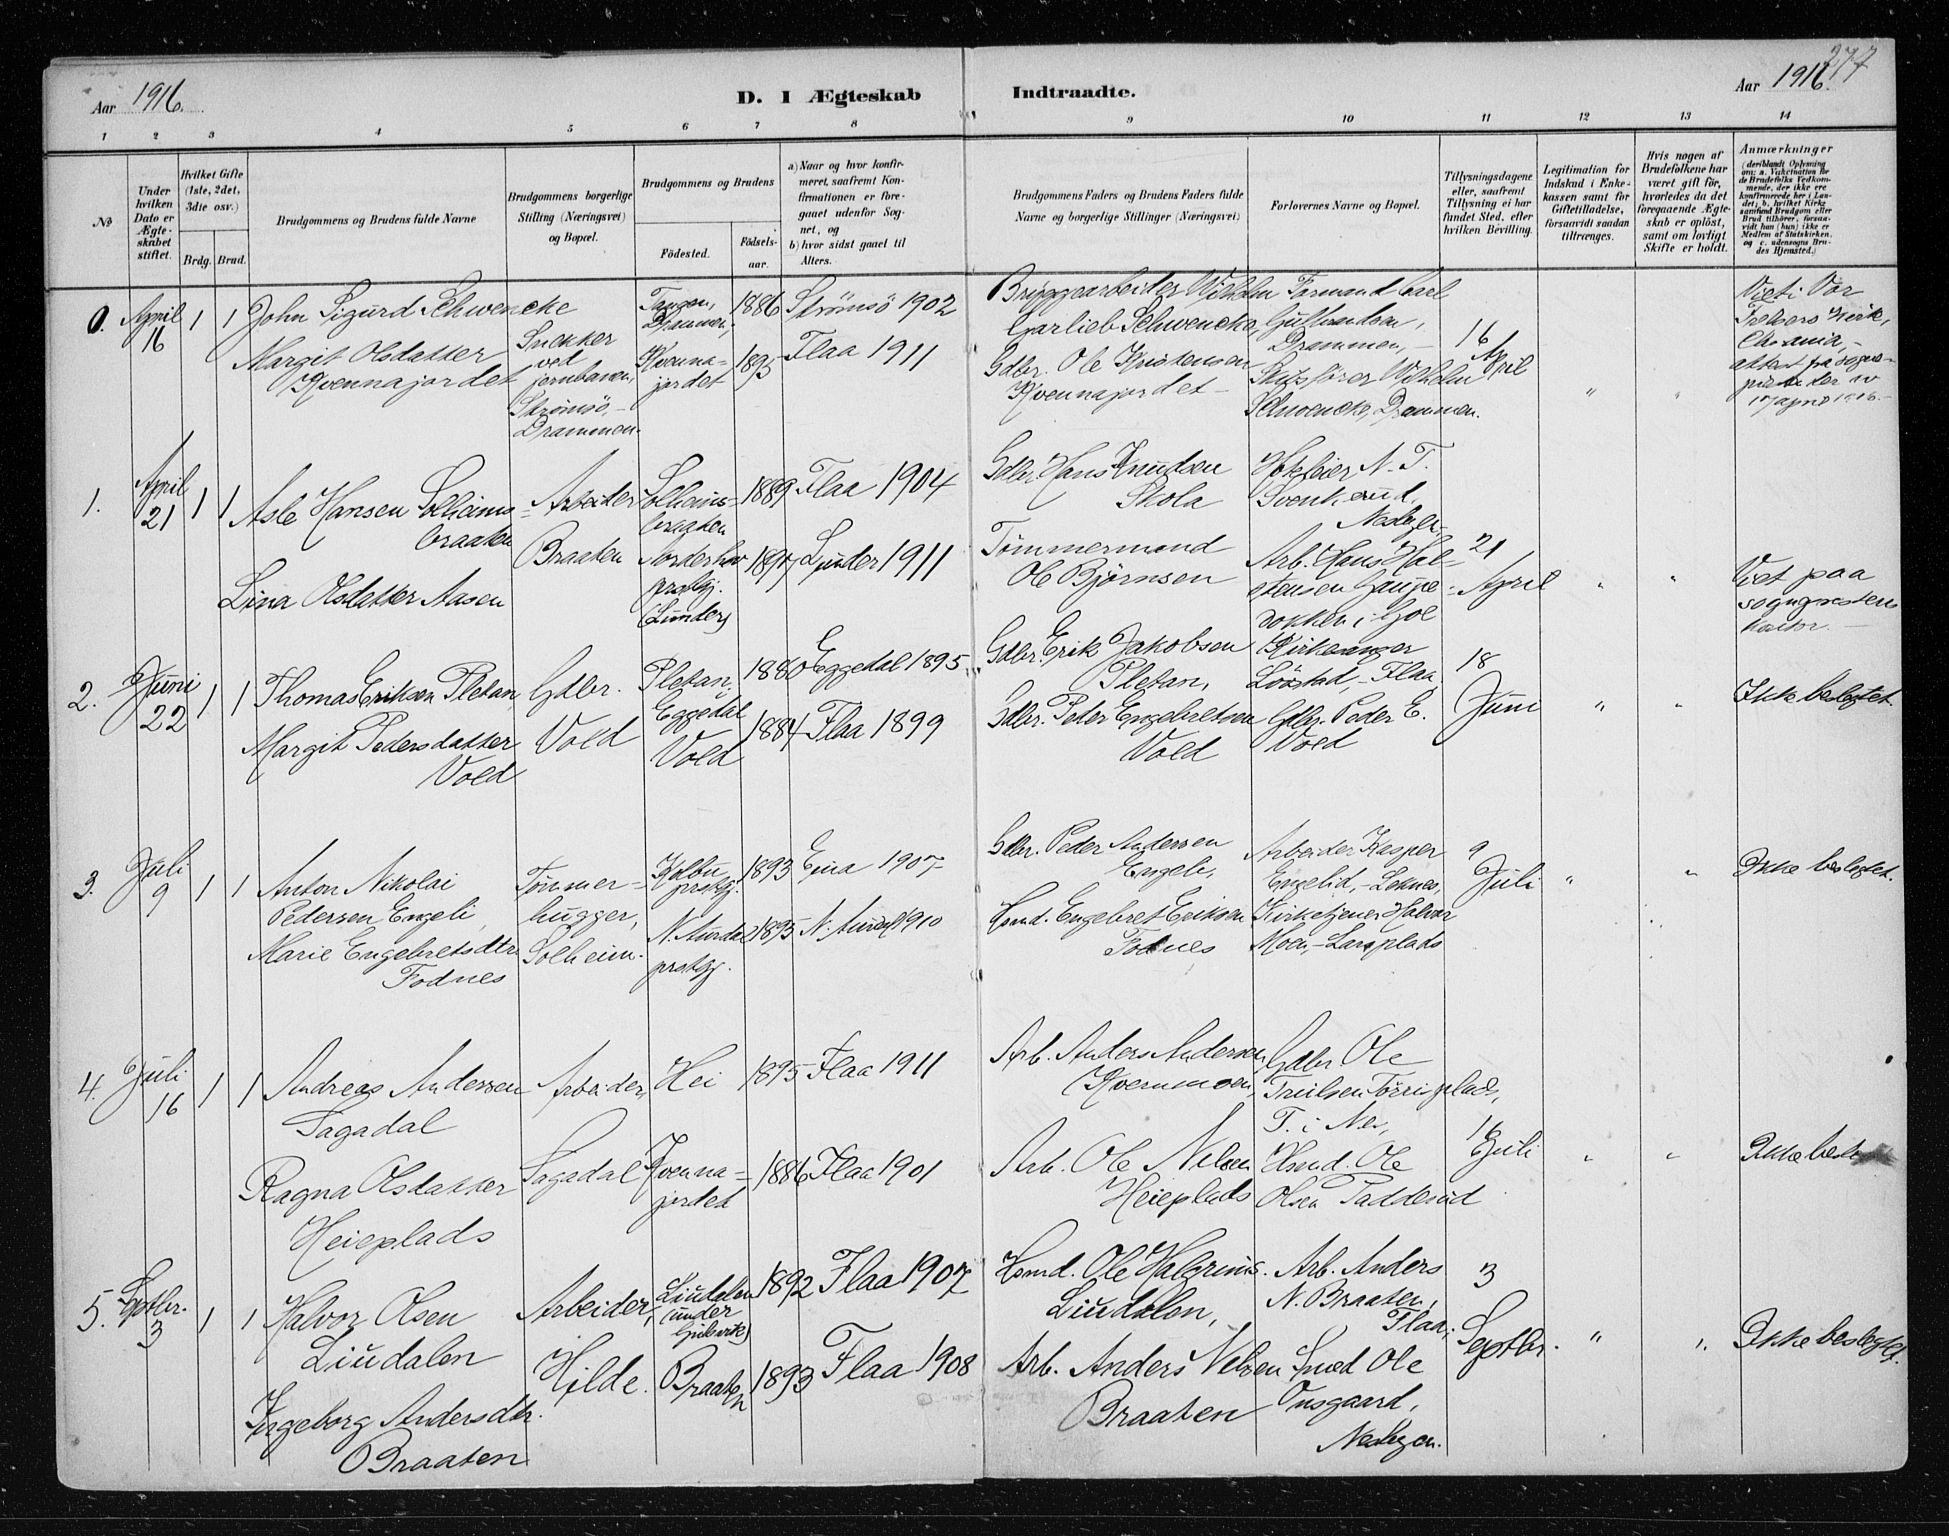 277
Aar 1916.
D. I Ægteskab Indtraadte.
Aar 1916.
1 2 3 4 5 6 7 8 9 10 11 12 13 14
No
Under hvilken Dato er Ægteskabet stiftet.
Hvilket Gifte (1ste, 2det, 3die osv.)
Brdg. Brud.
Brudgommens og Brudens fulde Navne
Brudgommens borgerlige Stilling (Næringsvei) og Bopæl.
Brudgommens og Brudens
Fødested.
Fødselsaar.
a) Naar og hvor konfirmeret, saafremt Konfirmationen er foregaaet udenfor Sognet, og
b) hvor sidst gaaet til Alters.
Brudgommens Faders og Brudens Faders fulde Navne og borgerlige Stillinger (Næringsvei)
Forlovernes Navne og Bopæl.
Tillysningsdagene eller, saafremt Tillysning ei har fundet Sted, efter hvilken Bevilling.
Legitimation for Indskud i Enkekassen samt for Giftetilladelse, forsaavidt saadan tiltrænges.
Hvis nogen af Brudefolkene har været gift før, hvorledes da det foregaaende Ægteskab er opløst, samt om lovligt Skifte er holdt.
Anmærkninger
(deriblandt Oplysning om: a. Vakcination for de Brudefolks Vedkommende, der ikke ere konfirmerede her i Landet; b. hvilket Kirkesamfund Brudgom eller Brud tilhører, forsaavidt han (hun) ikke er Medlem af Statskirken, og c. udensogns Brudes Hjemsted.)
0.
April
16
1 1
John Sigurd Schwencke
Margit Olsdatter
Kvennajordet
Snekker
ved
jernbanen,
Strømsø,
Drammen.
Tangen,
Drammen,
Kvenna-
jordet
1886
1895
Strømsø 1902
Flaa 1911
Bryggearbeider Wilhelm
Garlieb Schwencke,
Gdbr. Ole Kristensen
Kvennajordet
Formand Carl
Gulbrandsen,
Drammen,
Skibsfører Wilhelm
Schwencke, Drammen.
16
April
"
"
Viet i Vor
Frelsers Kirke,
Chr.ania,
attest fra sogne-
17 april 1916.
1.
April
21
1 1
Asle Hansen Solheims-
braaten
Lina Olsdatter Aasen
Arbeider
Braaten
Solheims-
braaten
Norderhov
prstgj.
(Lunder)
1889
1897
Flaa 1904
Lunder 1911
Gdbr. Hans Knudsen
Skola
Tømmermand
Ole Bjørnsen
N. T.
Svenkerud,
Nesbyen
Arb. Hans Hal-
stensen Gaupe-
dokken i Gol
21
April
"
"
Viet paa
sogneprestens
kontor.
2.
Juni
22
1 1
Thomas Eriksen Pletan
Margit Pedersdatter
Vold
Gdbr.
Vold
Pletan,
Eggedal
Vold
1880
1884
Eggedal 1895
Flaa 1899
Gdbr. Erik Jakobsen
Pletan,
Gdbr. Peter Engebretsen
Vold
Kirkesanger
Løstad, Flaa,
Gdbr. Peder E.
Vold
18
Juni
"
"
Ikke beslegtet.
3.
Juli
9
1 1
Anton Nikolai
Pedersen Engeli,
Marie Engebretsdtr.
Fodnes
Tømmer-
hugger,
Solheim.
Kolbu
prstgj.
N. Aurdal
prstgj.
1893
1895
Eina 1907
N. Aurdal 1910
Gdbr. Peder Andersen
Engeli,
Hsmd. Engebret Eriksen
Fodnes
Arbeider Kasper
Engelid, Leknes,
Kirketjener Halvor
Moen, Larsplads
9
Juli
"
"
Ikke beslegtet.
4.
Juli
16
1 1
Andreas Andersen
Sagadal
Ragna Olsdatter
Heieplads
Arbeider,
Sagadal
Hei
Kvenna-
jordet
1895
1886
Flaa 1911
Flaa 1901
Arb. Anders Andersen
Kvernmoen,
Arb. Ole Nilsen
Heieplads
Gdbr. Ole
Truilsen Tørrisplads,
T. i Nes,
Hsmd. Ole
Olsen Padderud
16
Juli
"
"
Ikke besl
5.
Septbr.
3
1 1
Halvor Olsen
Liudalen
Ingeborg Andersdtr.
Braaten
Arbeider,
Hilde.
Liudalen
(under
Gulsvik)
Braaten
1892
1893
Flaa 1907
Flaa 1908
Hsmd. Ole Halgrims.
Liudalen,
Arb. Anders Nelsen
Braaten
Arb. Anders
N. Braaten,
Flaa,
Smed Ole
Onsgaard,
Nesbyen.
3
Septbr.
"
"
Ikke beslegtet.